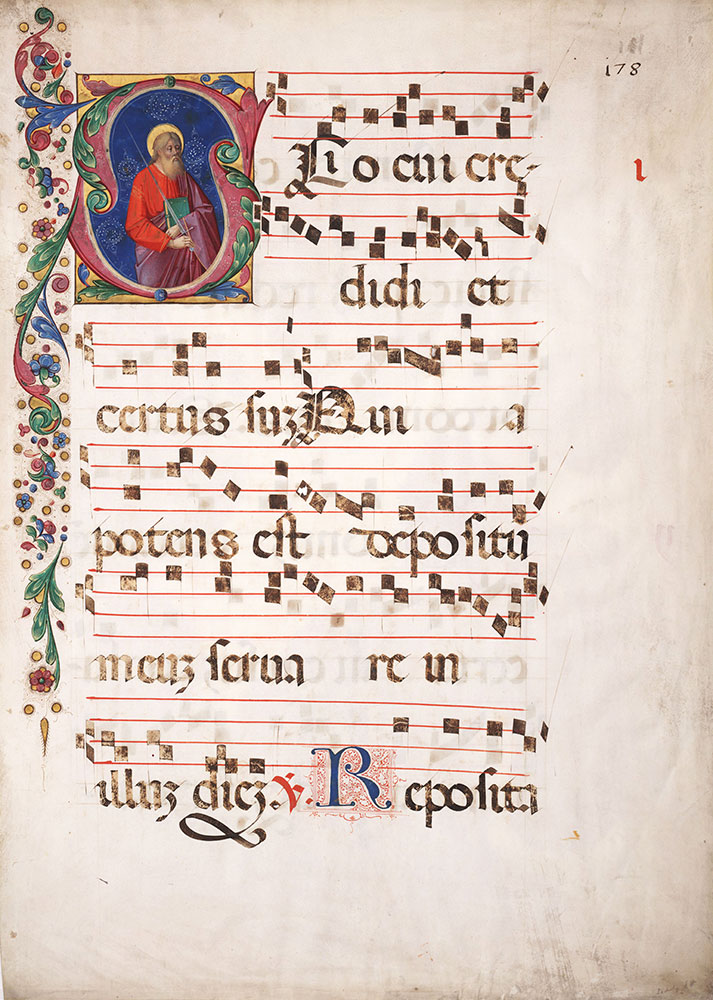 178
SCIo cui cre-
1
didi et
certus suʒ Qui a
potens est depositū
meuʒ serua re in
illuʒ dieʒ. ℣. Reposita